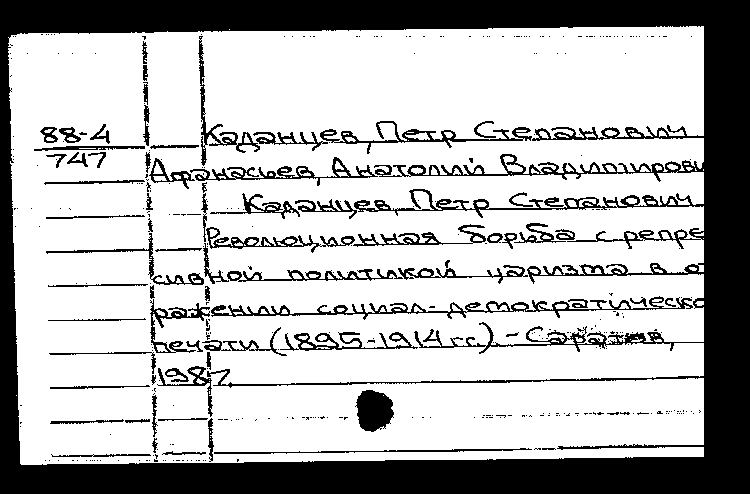 88-4
747
Каданцев, Петр Степанович
Афанасьев, Анатолий Владимирови
Каданцев, Петр Степанович
Революционная борьба с репре
сивной политикой царизма в от
ражении социал-демократическо
печати (1895-1914 гг.). - Саратов,
1987.